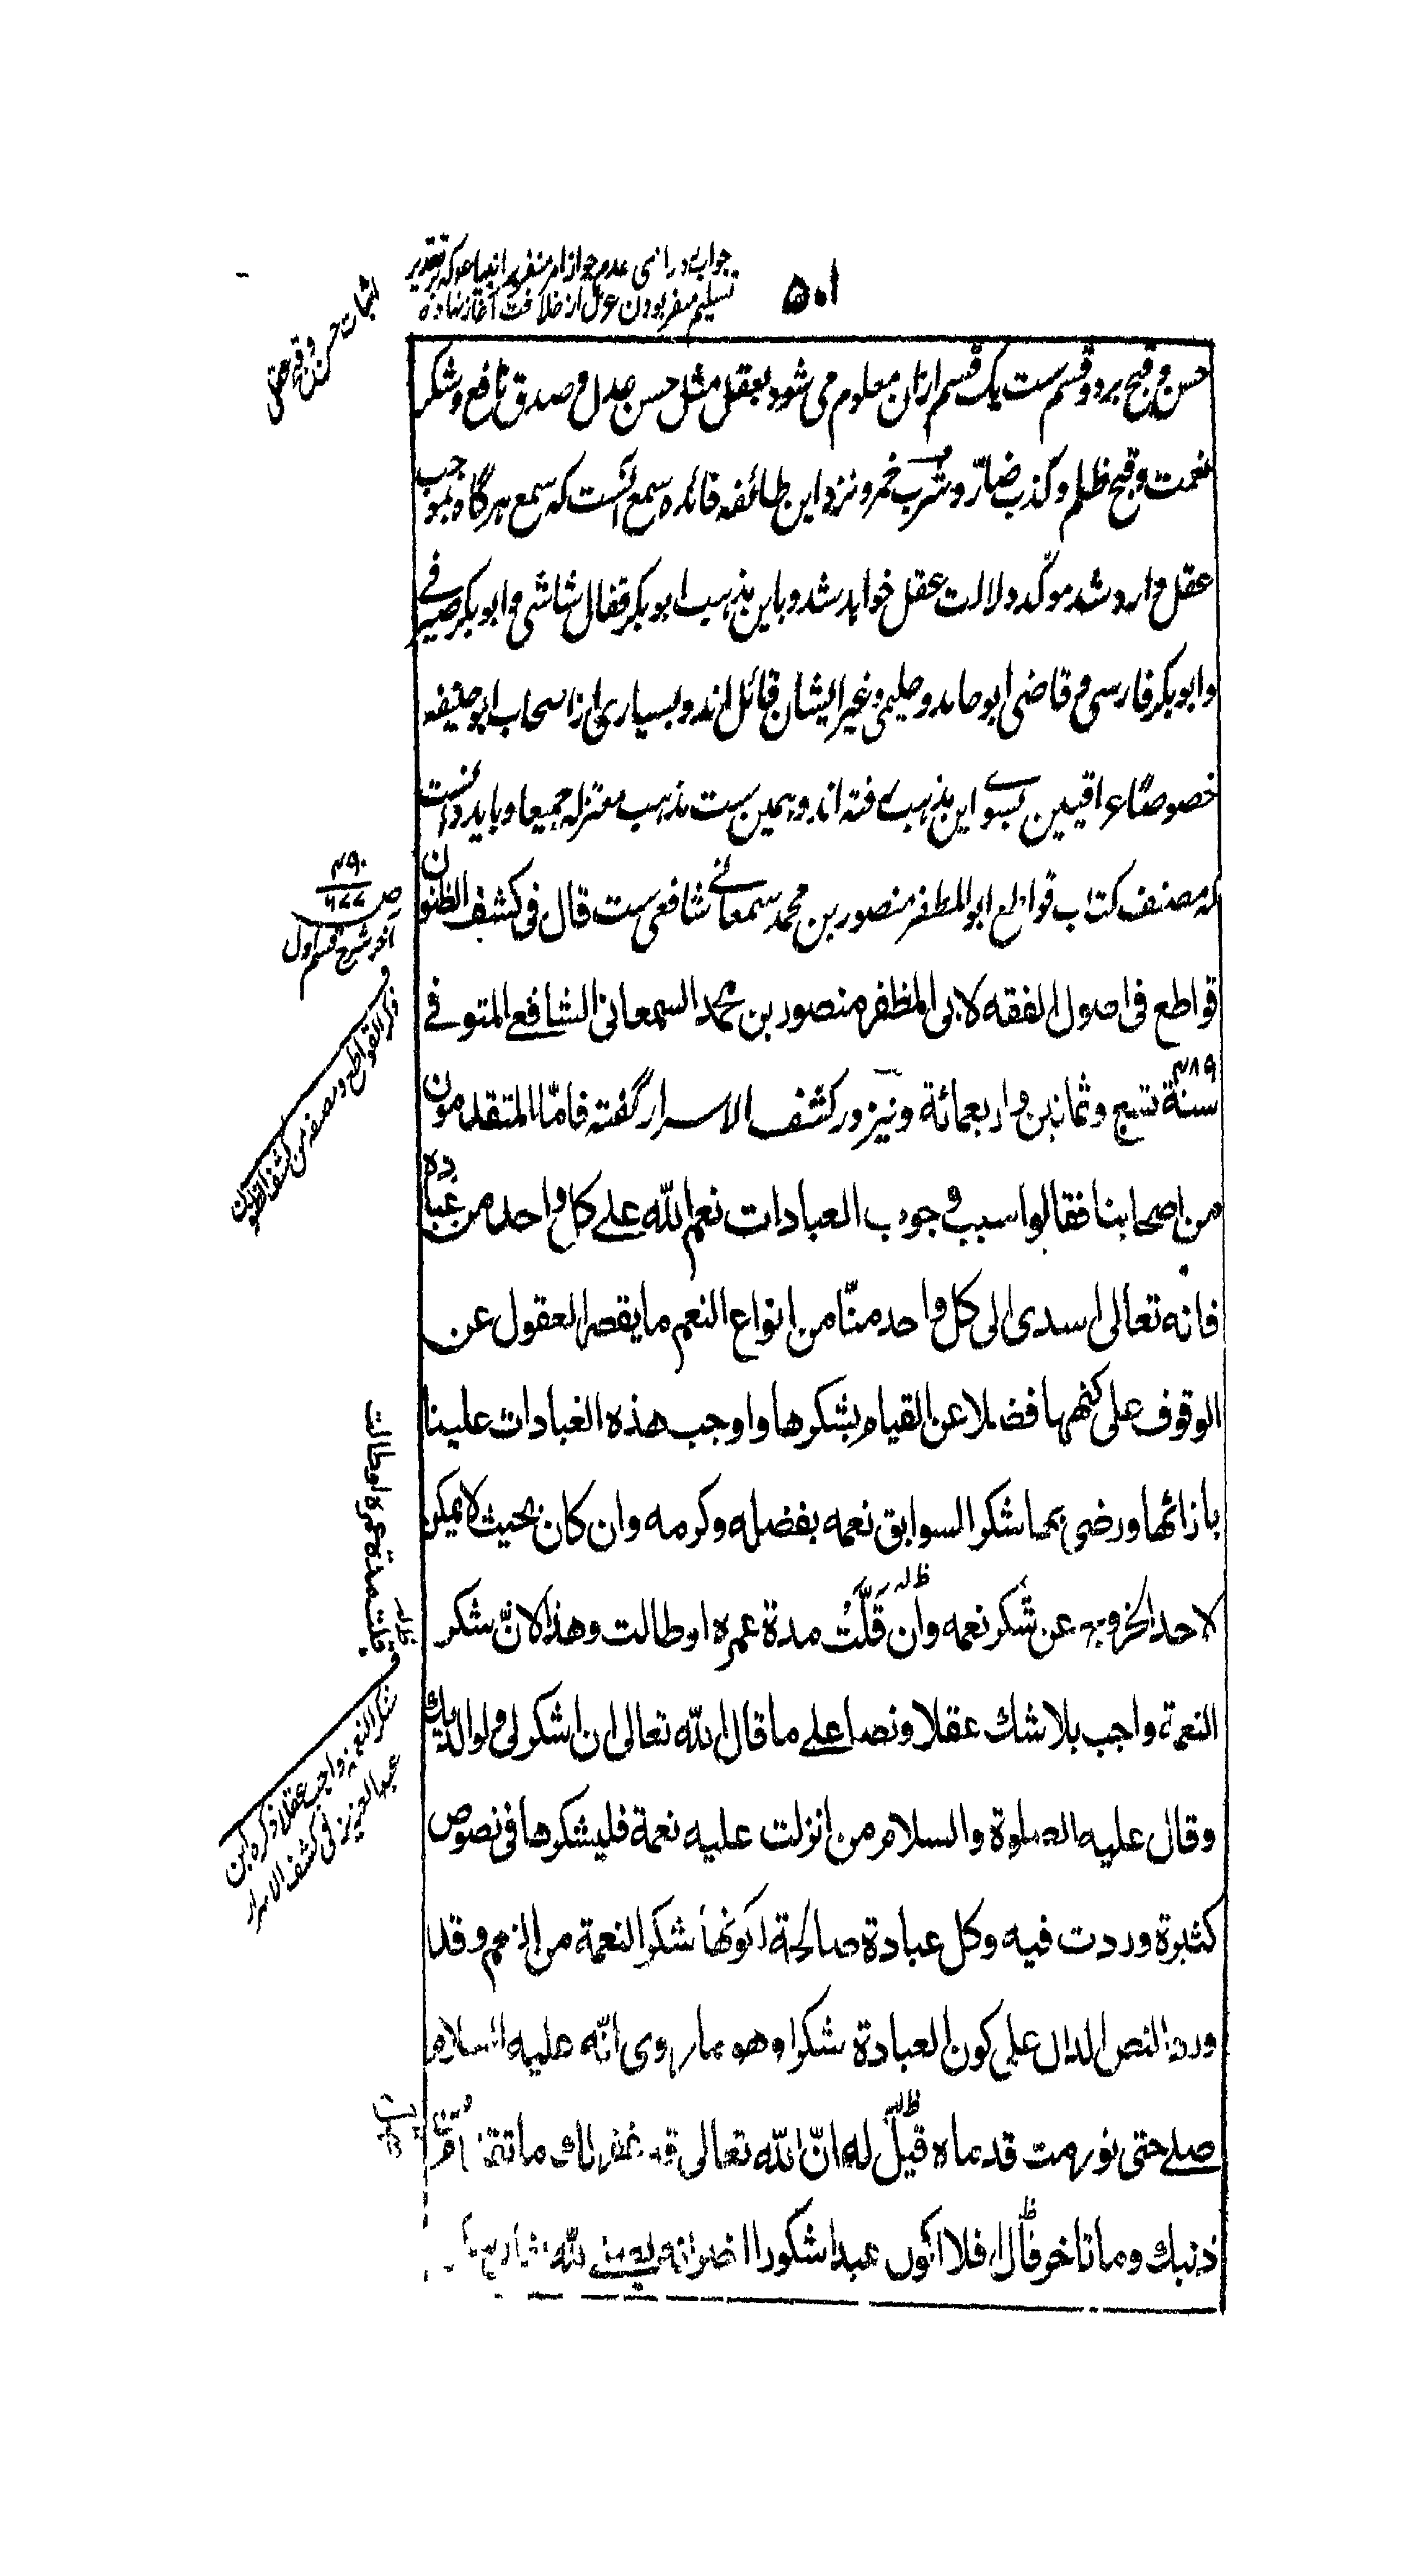 ۵۰۱
جواب در امی عدم جواز امر منفر بر انبیا عو که بر تقدیر
تسلیم منفر بودن عزل از خلافت آغاز نهاده
اثبات حسن و قبح عقلی
حسن و قبح بر دو قسم ست یک قسم ازان معلوم می شود بعقل مثل حسن عدل و صدق نافع و شکر
نعمت و قبح ظلم و کذب ضارّ و شرب خمر و نزد این طائفه فائده سمع آنست که سمع هرگاه بموجب
عقل وارد شد موکد دلالت عقل خواهد شد و باین مذهب ابو بکر قفال شاشی و ابو بکر صیرفے
و ابو بکر فارسی و قاضی ابو حامد و حلیمی و غیر ایشان قائل اند و بسیاری از اصحاب ابو حنیفه
خصوصًا عراقیین بسوے این مذهب رفته اند و همین ست مذهب معتزله جمیعا و باید دانست
که مصنف کتاب قواطع ابو المظفر منصور بن محمد سمعانے شافعی ست قال فی کشف الظنون
قواطع فی اصول الفقه لابی المظفر منصور بن محمد السمعانی الشافعے المتوفے
۴۸۹
سنة تسع وثمانین واربعمائة ونیز در کشف الاسرار گفته فامّا المتقدمون
من اصحابنا فقالوا سبب وجوب العبادات نعم الله علے کل واحد من عباده
فانه تعالی اسدی الی کل واحد منّا من انواع النعم ما یقصر العقول عن
الوقوف علی کنهها فضلا عن القیام بشکرها واوجب هذه العبادات علینا
بازائها ورضی بها شکرا لسوابق نعمه بفضله وکرمه وان کان بحیث لا یمکن
لاحد الخروج عن شکر نعمه وان قلّت مدة عمره او طالت وهذا لانّ شکر
النعمة واجب بلا شك عقلا ونصا علے ما قال الله تعالی ان اشکر لی ولوالدیك
وقال علیه الصلوة والسلام من انزلت علیه نعمة فلیشکرها فی نصوص
کثیرة وردت فیه وکل عبادة صالحة لکونها شکرا لنعمة من النعم وقد
ورد النص الدال علی کون العبادة شکرا وهو ما روی انّه علیه السلام
صلے حتی تورمت قدماه قیل له انّ الله تعالی قد غفر لك ما تقدم من
ذنبك وما تاخر فقال افلا اکون عبدا شکورا اخبر انه یصلے لله
۴۹۰
ص ۶۷۷
آخر شرح قسم اول
ذکر القواطع ومصنفه من کشف الظنون
قلت مدة عمره او طالت
شکر النعمة واجب عقلا ذکره ابن
عبد العزیز فی کشف الاسرار